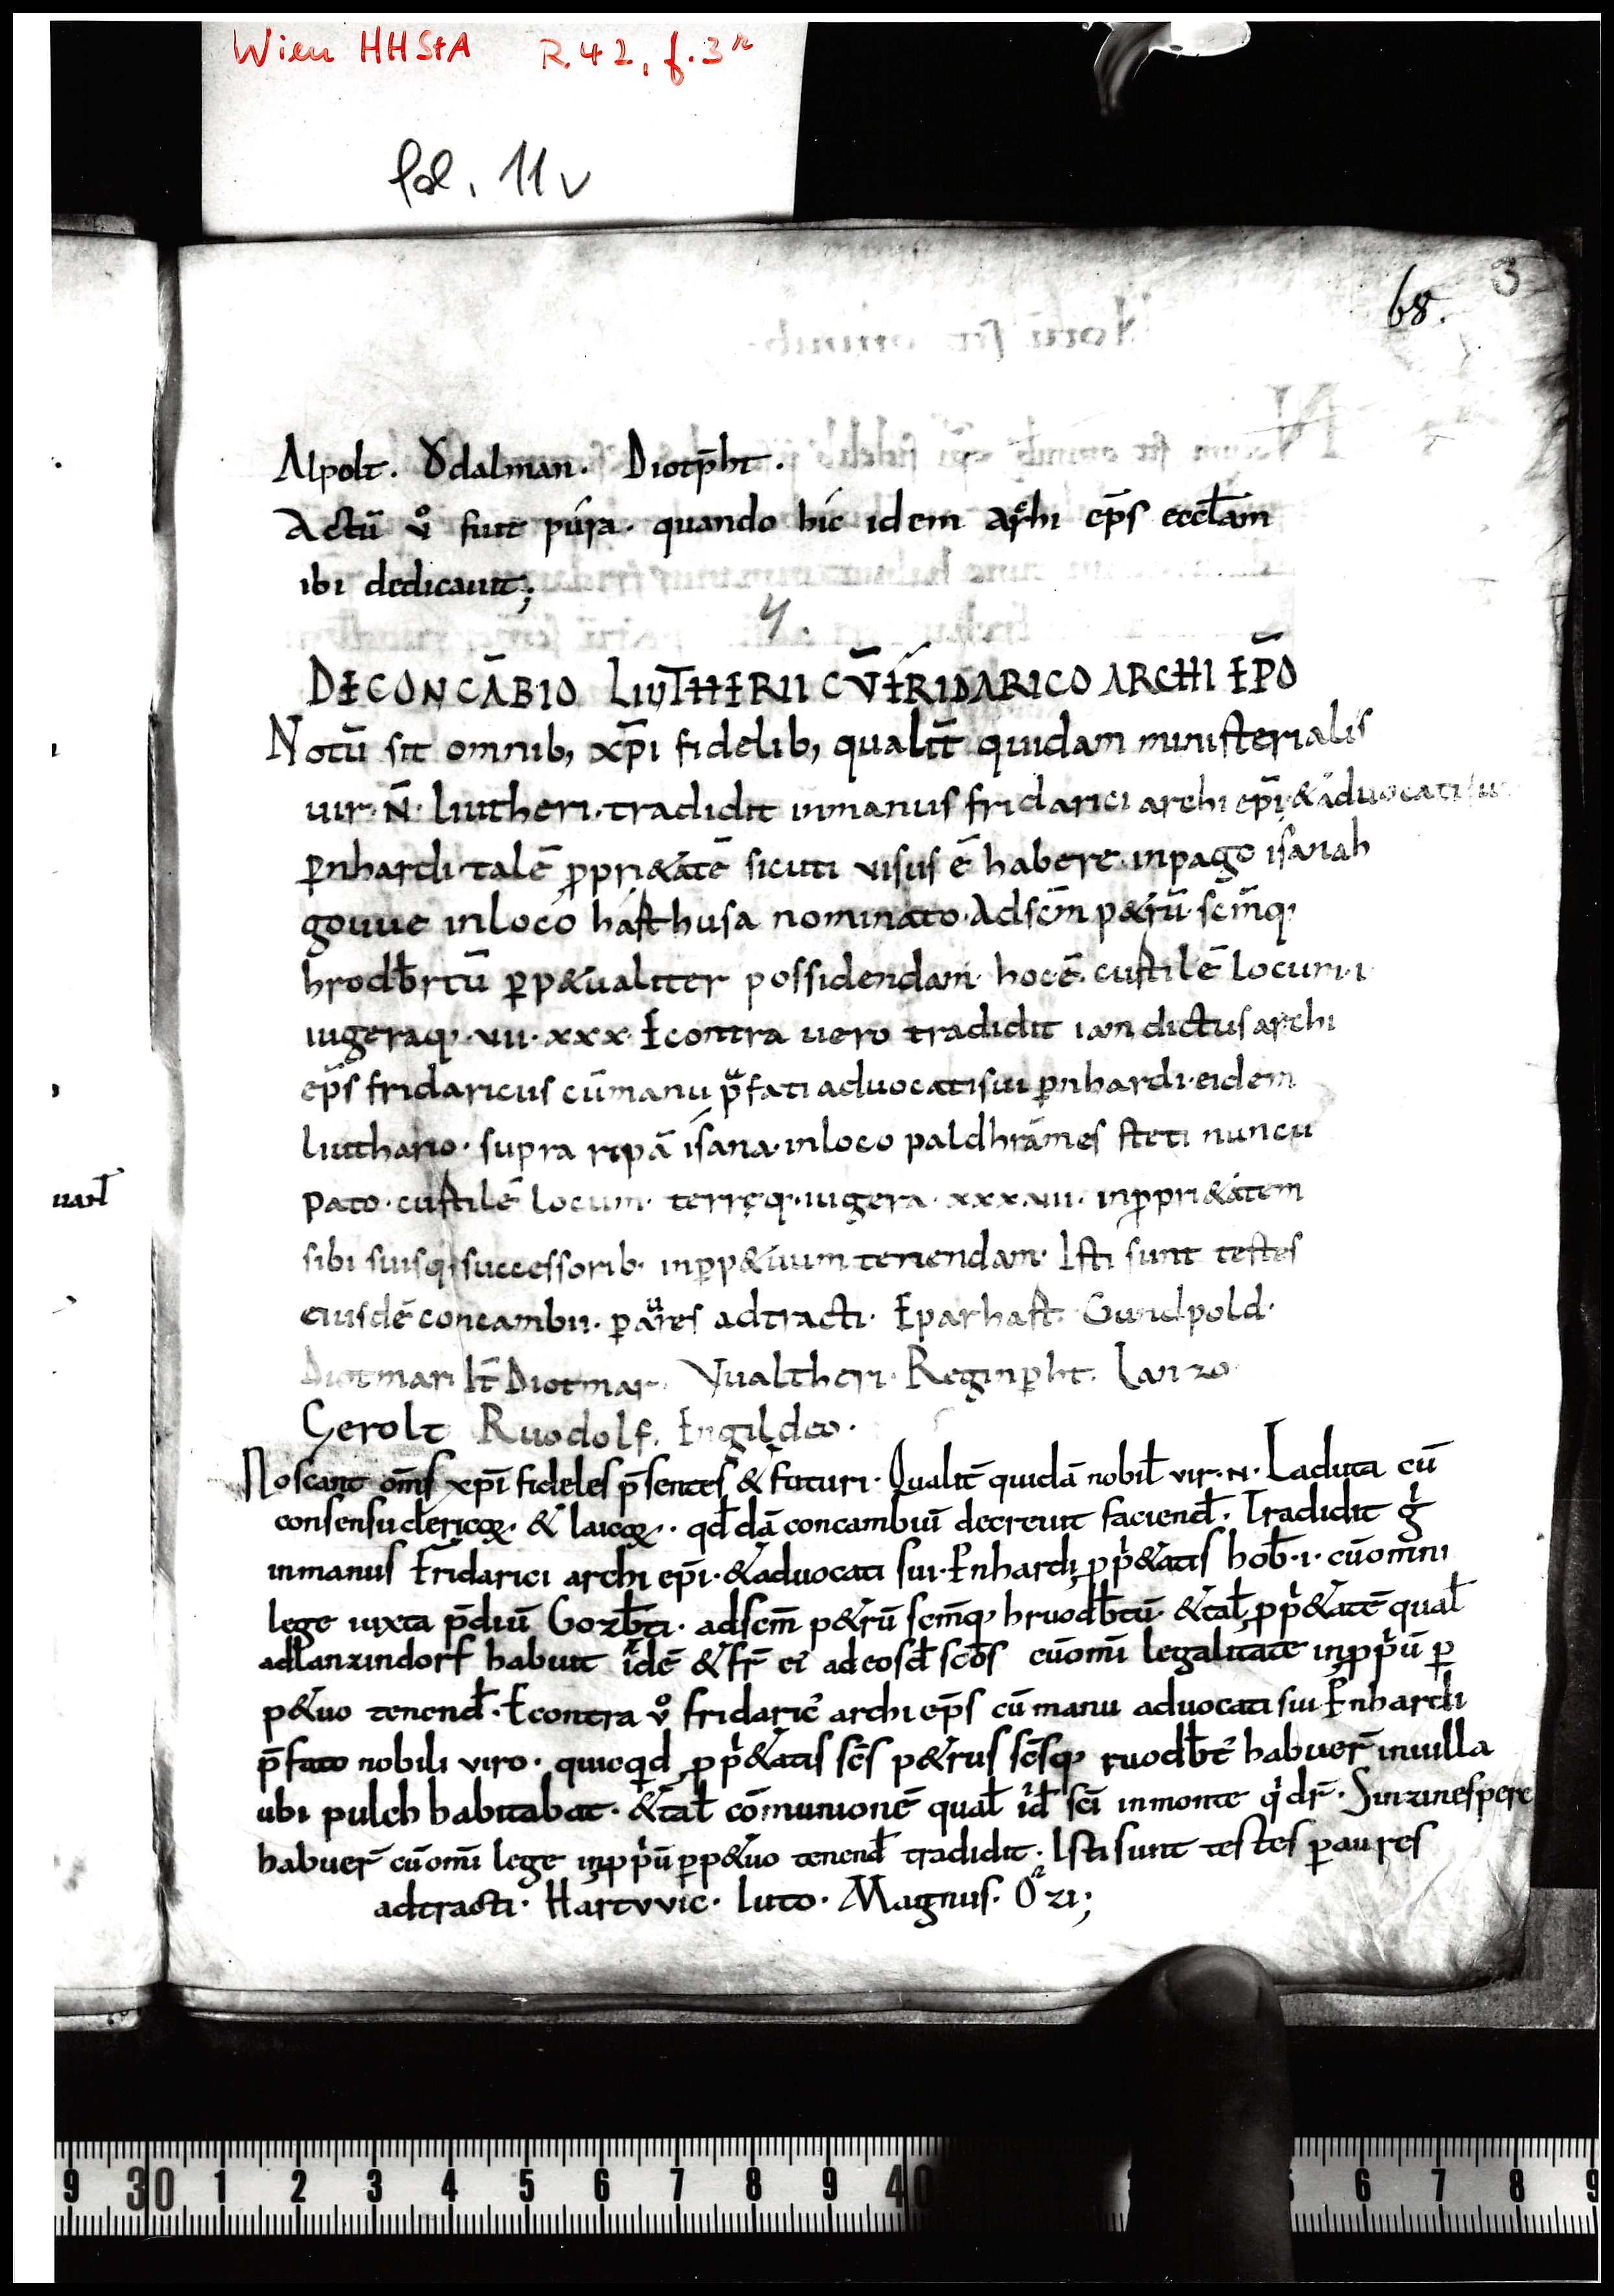 Wien HHStA R.42, f.3r
fol. 11v
3
68.
Alpolt. Vdalman. Diotp̄ht.
Actū v̊ fuit púra. quando hic idem archi ep̄s eccl̄am
ibi dedicauit;
4.
DECONCĀBIO LIUTHERII CV̄FRIDARICO ARCHI EP̄O
Notū sit omnib, xp̄i fidelib, qualit̄ quidam ministerialis
uir. N̄. liutheri. tradidit inmanus fridarici archi ep̄i. & aduocati
ꝑnhardi. talē ꝓpri&atē sicuti visus ē habere. inpago isanah
gouue inloco hásthusa nominato. Adsc̄m p&rū. sc̄mq;
hrodb̄rtū ꝑp&ualiter possidendam. hoc ē. custilē locum. i
iugeraq;. vii. xxx. Econtra uero tradidit iam dictus archi
ep̄s fridaricus cūmanu p̄fati aduocatisui ꝑnhardi. eidem
liuthario. supra ripā isana. inloco paldhrámes steti nuncu
pato. custilē locum. terręq;. iugera. xxxvii. inꝓpri&átem
sibi suisq; successorib. inꝑp&uum tenendam. Isti sunt testes
eiusdē concambii. ꝑ aures adtracti. Eparhast. Gundpold.
Diotmar. It̄ Diotmar. Vualtheri. Reginꝑht. Lanzo
Gerolt Ruodolf. Engildeo.
Noscant om̄s xp̄i fideles p̄sentes & futuri. Qualit̄ quidā nobil̄ vir. N. Laduta cū
consensu clericoꝝ. & laicoꝝ. qd̄dā concambiū decreuit faciend̄. Tradidit gͥ
inmanus Fridarici archi ep̄i. & aduocati sui. Ꝑnhardi ꝓpͥ&atis hob̄. i. cūomni
lege iuxta p̄diū Gozb̄ti. adsc̄m p&rū sc̄mq; hruodb̄tū. & tal̄ ꝓpͥ&atē qual̄
adlanzindorf habuit idē & fr̄ ei᾽ ad eosd̄ sc̄os cūom̄i legalitate inꝓpͥū ꝑ
p&uo tenend̄. Econtra v̊ fridaric᾽ archi ep̄s cū manu aduocati sui Ꝑnhardi
p̄fato nobili viro. quicqͥd ꝓpͥ&atis sc̄s p&rus sc̄sq; ruodb̄t᾽ habuer̄ inuilla
ubi pulch habitabat. & tal̄ cōmunionē qual̄ id̄ sc̄i inmonte qͥ dr̄. Sinzinespere
habuer̄ cūom̄i lege inꝓpͥū ꝑp&uo tenend̄ tradidit. Isti sunt testes ꝑ aures
adtracti. Hartvvic. luto. Magnus. Ozi;
uarl̄
9 30 1 2 3 4 5 6 7 8 9 40 5 6 7 8 9